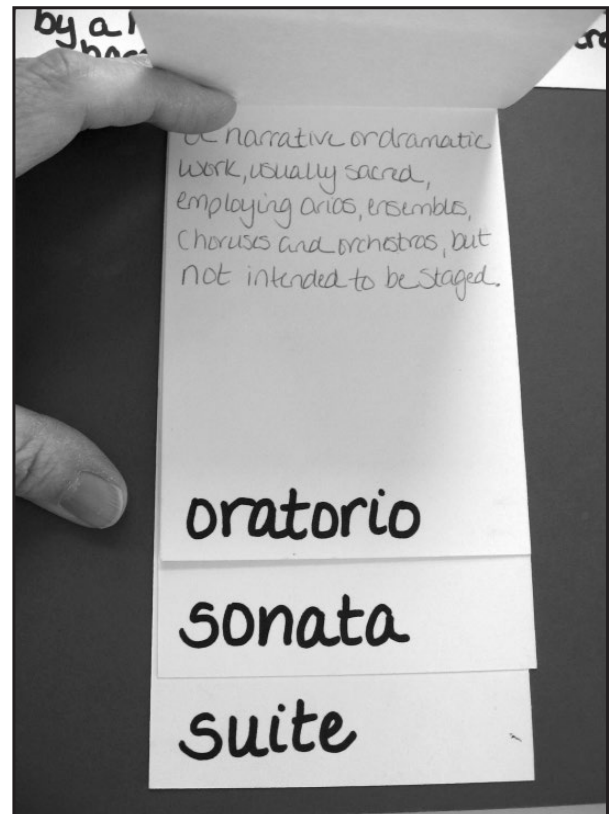 by a
a narrative or dramatic
work, usually sacred,
employing arias, ensembles,
choruses and orchestras, but
not intended to be staged.
oratorio
sonata
suite